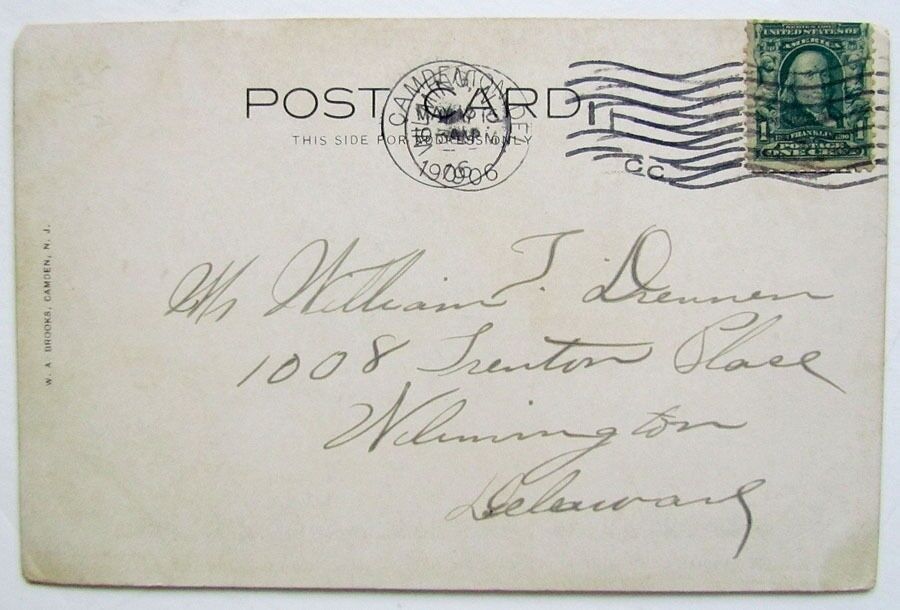 POST CARD
THIS SIDE FOR ADDRESS ONLY
CAMDEN
1906
C.C.
SERIES 1902
UNITED STATES OF
AMERICA
1 FRANKLIN 1
POSTAGE
ONE CENT
W. A. BROOKS, CAMDEN, N. J.
Mr William T. Drennen
1008 Trenton Place
Wilmington
Delaware